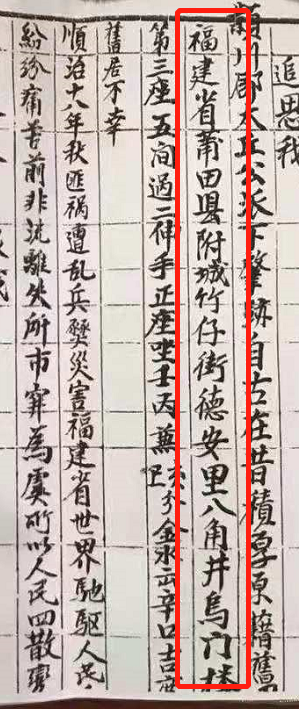 追思我
潁川郡太丘公派下肇跡自古在昔積厚原籍舊
福建省莆田县附城竹仔街德安里八角井烏门楼
第三座五间過二伸手正座坐壬丙兼 分金水云辛口吉
舊居不幸
順治十八年秋匪禍遭乱兵燹災害福建省世界馳驱人民
紛紛痛苦前非流離失所市井為虞所以人民四散